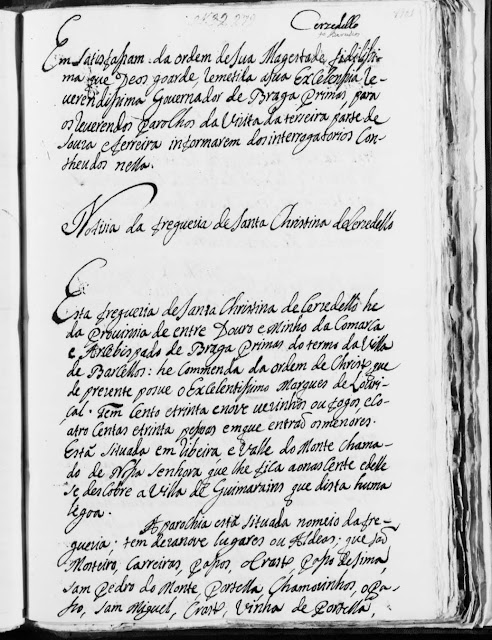 Cerzedello
Em Satisfassam da ordem de Sua Magestade fidelissi-
ma que Deos goarde remetila a sua Excelensia Re-
verendissima Governador de Braga Primas, para
os Reverendos Parolhos da Vizita da terseira parte de
Souza e Ferreira informarem dos interrogatorios Con-
theudos nella.
Notisia da freguezia de Santa Christina de Cerzedello
Esta freguezia de Santa Christina de Cerzedello he
da Provinsia de entre Douro e Minho da Comarca
e Arcebispado de Braga Primas do termo da Villa
de Barcellos: he Commenda da ordem de Christo que
de prezente posue o Excelentissimo Marques de Louri-
çal. Tem Cento e trinta e nove vezinhos ou fogos, e co-
atro Centas e trinta pessoas em que entrao os menores.
Está situada em ribeira e Valle do Monte Chama-
do de Nossa Senhora que lhe fica ao nascente e delle
se descobre a Villa de Guimarains que dista huma
legoa.
A parochia está situada no meio da fre-
guezia; tem dezanove lugares ou Aldeas; que sao
Mosteiro, Carreiras, Passos, o Crasto, Passo de Sima,
Sam Pedro do Monte, Portella, Chamosinhos, o Pa-
sso, Sam Miguel, Crasto, Vinha de Portella,